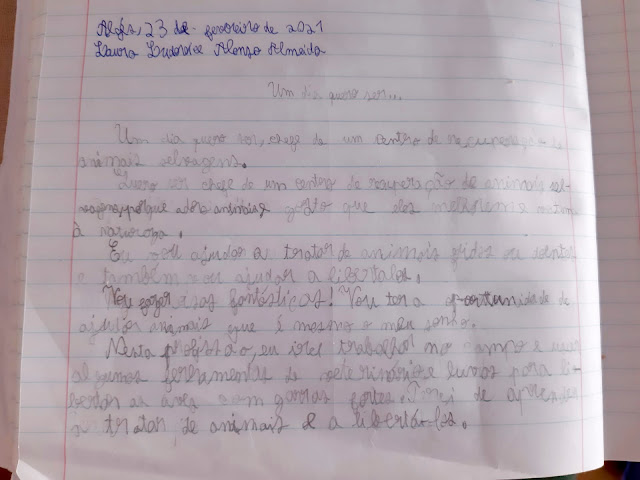 Algés, 23 de fevereiro de 2021
Laura Alonso Almeida
Um dia quero ser...
Um dia quero ser, chefe de um centro de recuperação de
animais selvagens.
Quero ser chefe de um centro de recuperação de animais sel-
vagens, porque adoro animais e gosto que eles melhorem e
à natureza.
Eu vou ajudar a tratar de animais feridos ou
e também vou ajudar a libertalos.
Vou fazer coisas fantásticas! Vou ter a oportunidade de
ajudar animais que é mesmo o meu sonho.
Nesta profissão, eu irei trabalhar no campo e usar
algumas ferramentas de veterinário e luvas para li-
bertar as aves com garras fortes. Terei de aprender
a tratar de animais e a libertá-los.